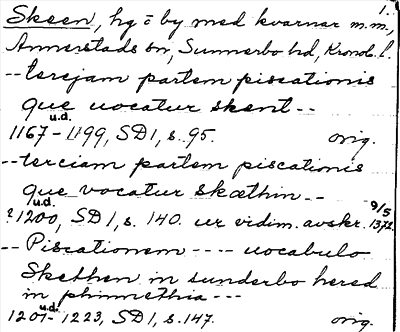 1.
Skeen, hg o by med kvarnar m.m.,
Annerstads sn, Sunnerbo hd, Kronob. l.
-- terciam partem piscationis
que uocatur skent --
u.d.
1167-1199, SD 1, s. 95. orig.
-- terciam partem piscationis
que vocatur skæthin --
u.d.
? 1200, SD 1, s. 140. ur vidim. avskr. 9/5 1372.
-- Piscationem ---- uocabulo
Skethen in sunderbo hered
in phinnethia ---
u.d.
1201-1223, SD 1, s. 147. orig.